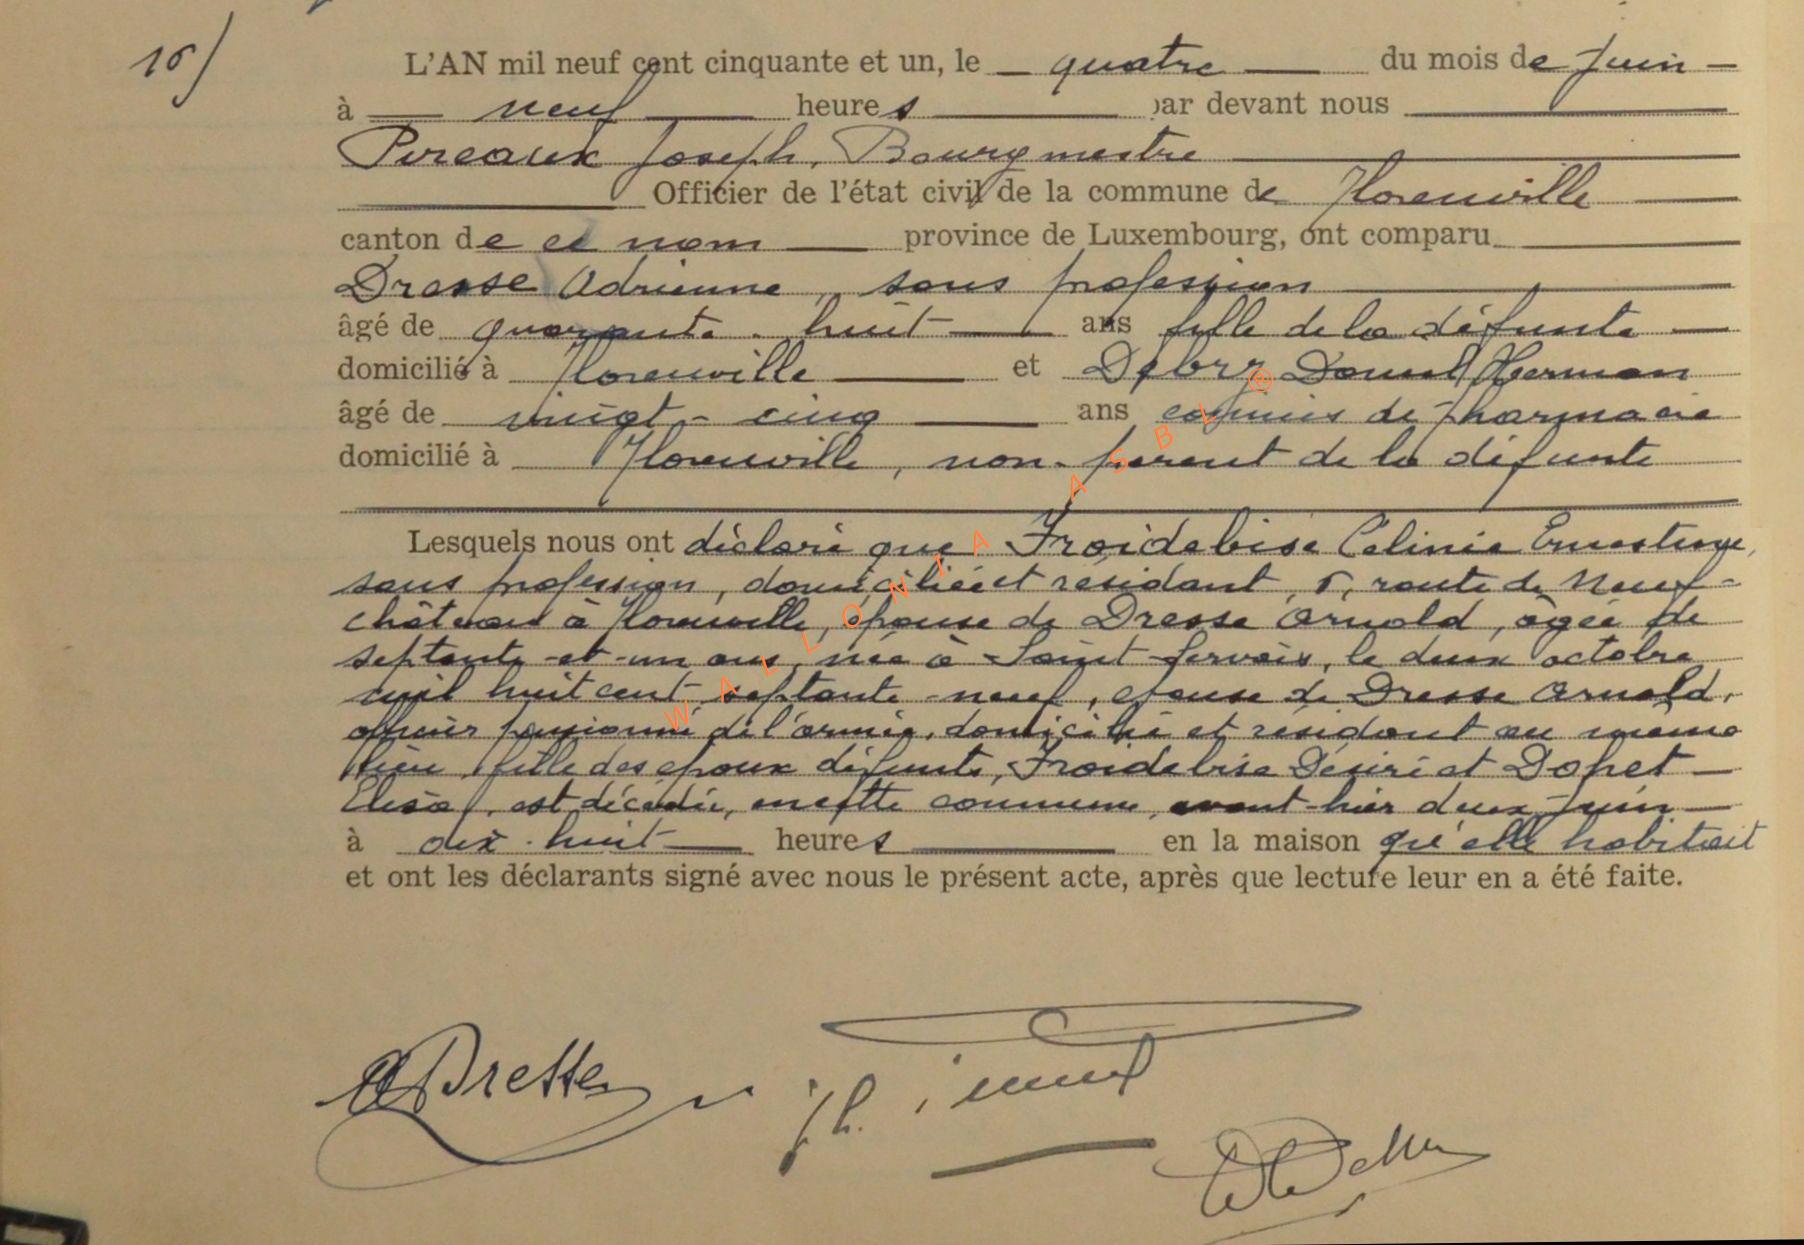 16)
L'AN mil neuf cent cinquante et un, le quatre du mois de Juin
à neuf heures par devant nous
Pireaux Joseph, Bourgmestre
Officier de l'état civil de la commune de Florenville
canton de ce nom province de Luxembourg, ont comparu
Dresse Adrienne, sans profession
âgé de quarante-huit ans fille de la défunte
domicilié à Florenville et Debrz Daniel Herman
âgé de vingt-cinq ans commis de pharmacie
domicilié à Florenville, non-parent de la défunte
Lesquels nous ont déclaré que Froidebise Celinie Ernestine,
sans profession, domiciliée et résidant, 5, route de Neuf-
château à Florenville, épouse de Dresse Arnold, âgée de
septante-et-un ans, née à Saint-Servais, le deux octobre
mil huit cent septante-neuf, épouse de Dresse Arnold,
officier pensionné de l'armée, domicilié et résidant au même
lieu, fille des époux défunts, Froidebise Désiré et Dopet
Elisa, est décédée, en cette commune, avant-hier deux juin
à dix-huit heures en la maison qu'elle habitait
et ont les déclarants signé avec nous le présent acte, après que lecture leur en a été faite.
A Dresse
WALLONIA ASBL ®